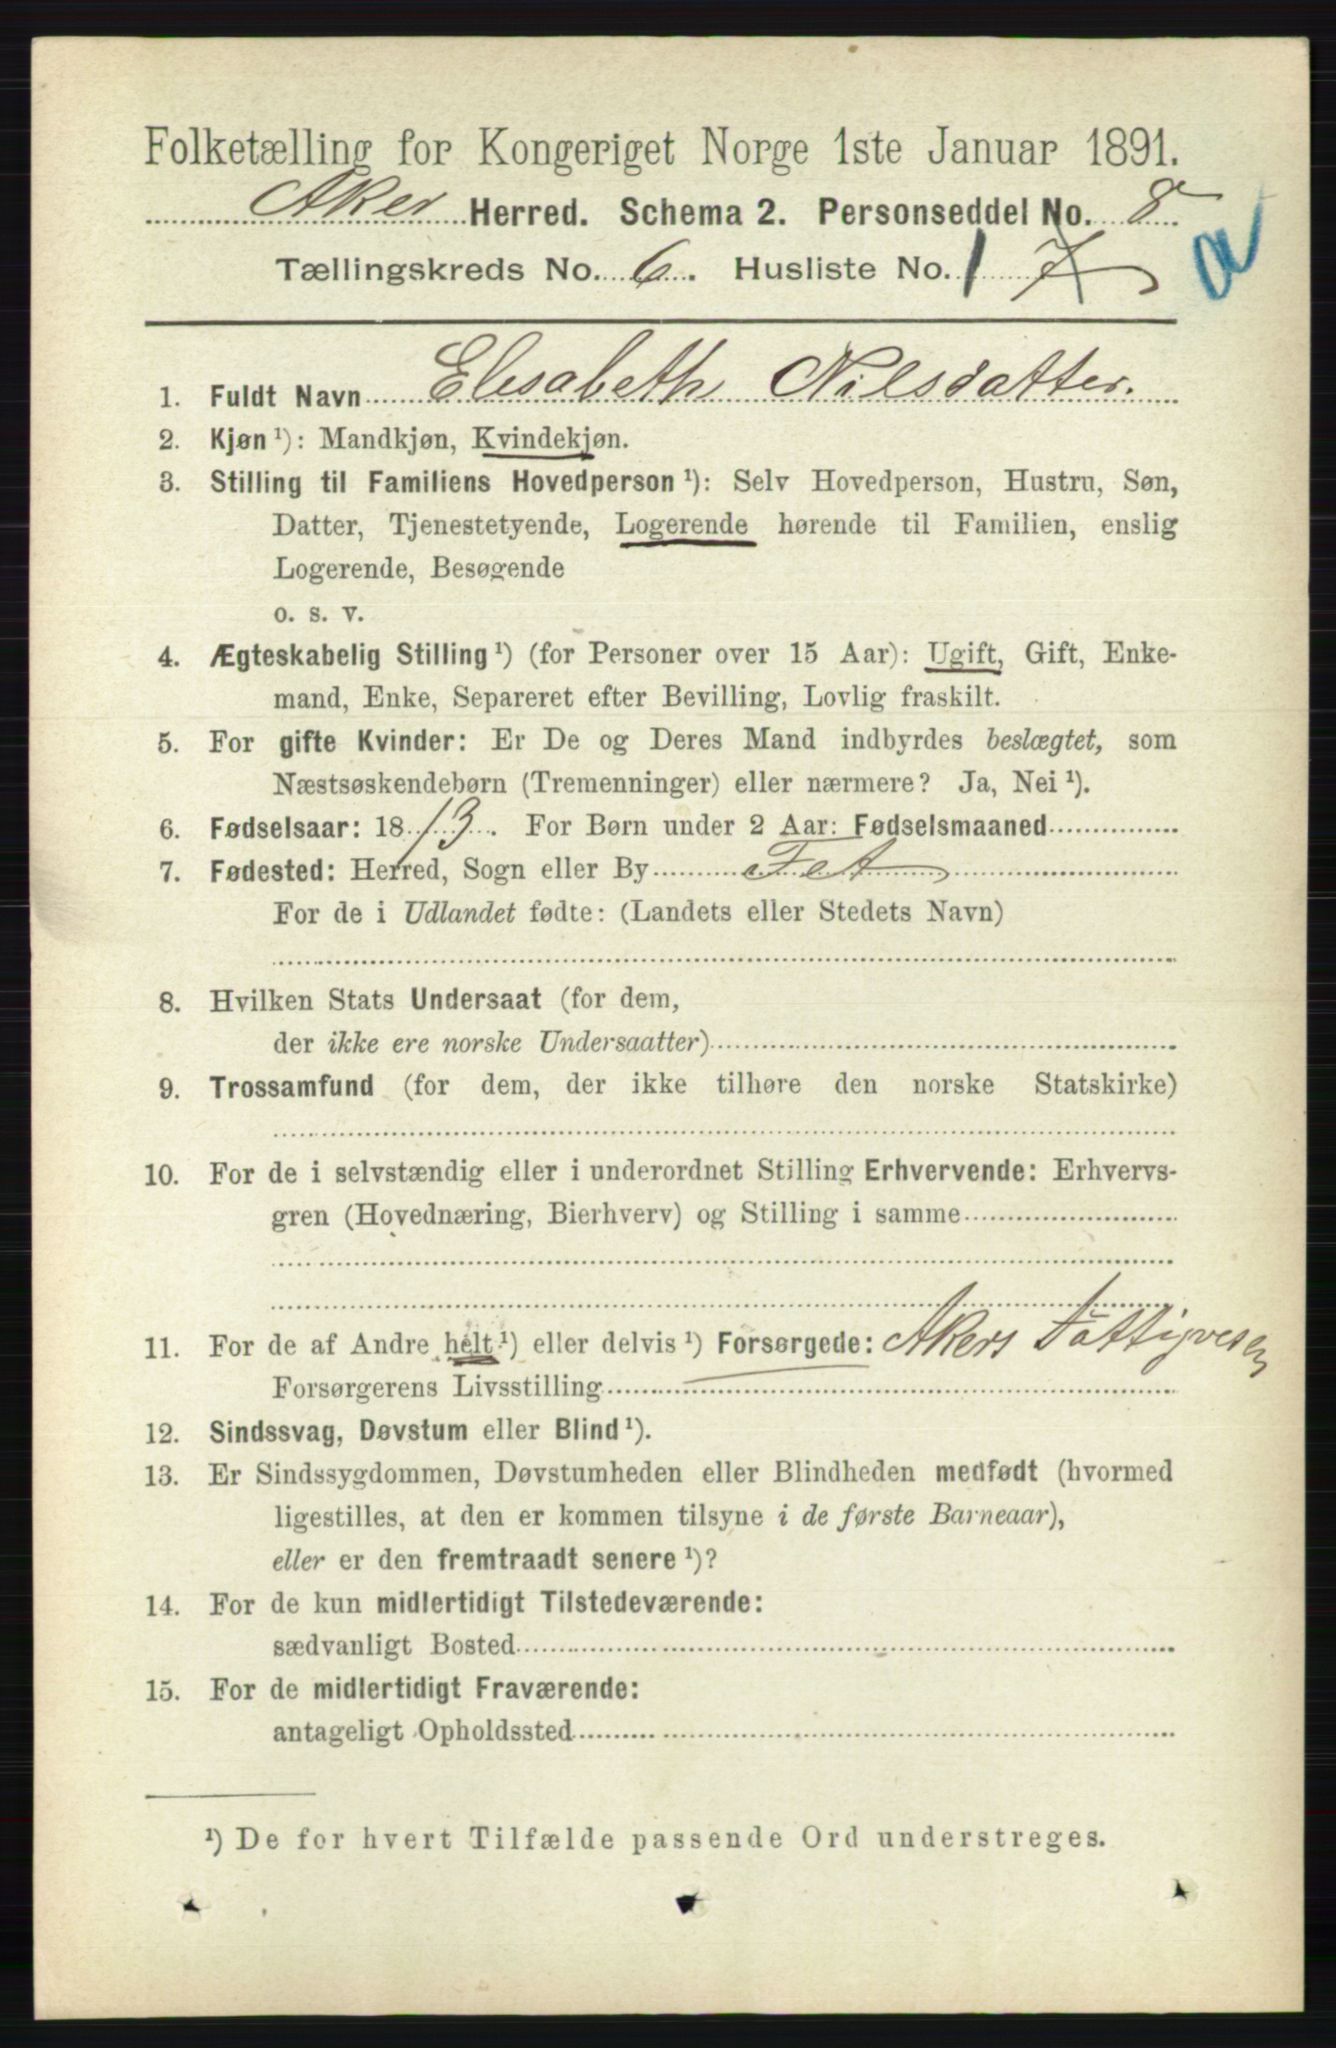 Folketælling for Kongeriget Norge 1ste Januar 1891.
Aker Herred. Schema 2. Personseddel No. 8
Tællingskreds No. 6. Husliste No. 1 7
a
1. Fuldt Navn Elisabeth Nilsdatter.
2. Kjøn ¹): Mandkjøn, Kvindekjøn.
3. Stilling til Familiens Hovedperson ¹): Selv Hovedperson, Hustru, Søn,
Datter, Tjenestetyende, Logerende hørende til Familien, enslig
Logerende, Besøgende
o. s. v.
4. Ægteskabelig Stilling ¹) (for Personer over 15 Aar): Ugift, Gift, Enke-
mand, Enke, Separeret efter Bevilling, Lovlig fraskilt.
5. For gifte Kvinder: Er De og Deres Mand indbyrdes beslægtet, som
Næstsøskendebørn (Tremenninger) eller nærmere? Ja, Nei ¹).
6. Fødselsaar: 1813. For Børn under 2 Aar: Fødselsmaaned
7. Fødested: Herred, Sogn eller By Fet
For de i Udlandet fødte: (Landets eller Stedets Navn)
8. Hvilken Stats Undersaat (for dem,
der ikke ere norske Undersaatter)
9. Trossamfund (for dem, der ikke tilhøre den norske Statskirke)
10. For de i selvstændig eller i underordnet Stilling Erhvervende: Erhvervs-
gren (Hovednæring, Bierhverv) og Stilling i samme
11. For de af Andre helt ¹) eller delvis ¹) Forsørgede: Akers Fattigvesen
Forsørgerens Livsstilling
12. Sindssvag, Døvstum eller Blind ¹).
13. Er Sindssygdommen, Døvstumheden eller Blindheden medfødt (hvormed
ligestilles, at den er kommen tilsyne i de første Barneaar),
eller er den fremtraadt senere ¹)?
14. For de kun midlertidigt Tilstedeværende:
sædvanligt Bosted
15. For de midlertidigt Fraværende:
antageligt Opholdssted
¹) De for hvert Tilfælde passende Ord understreges.